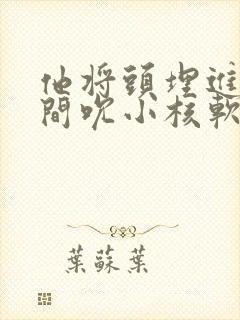 他将頭埋進
間吮小核軟
葉蘇葉